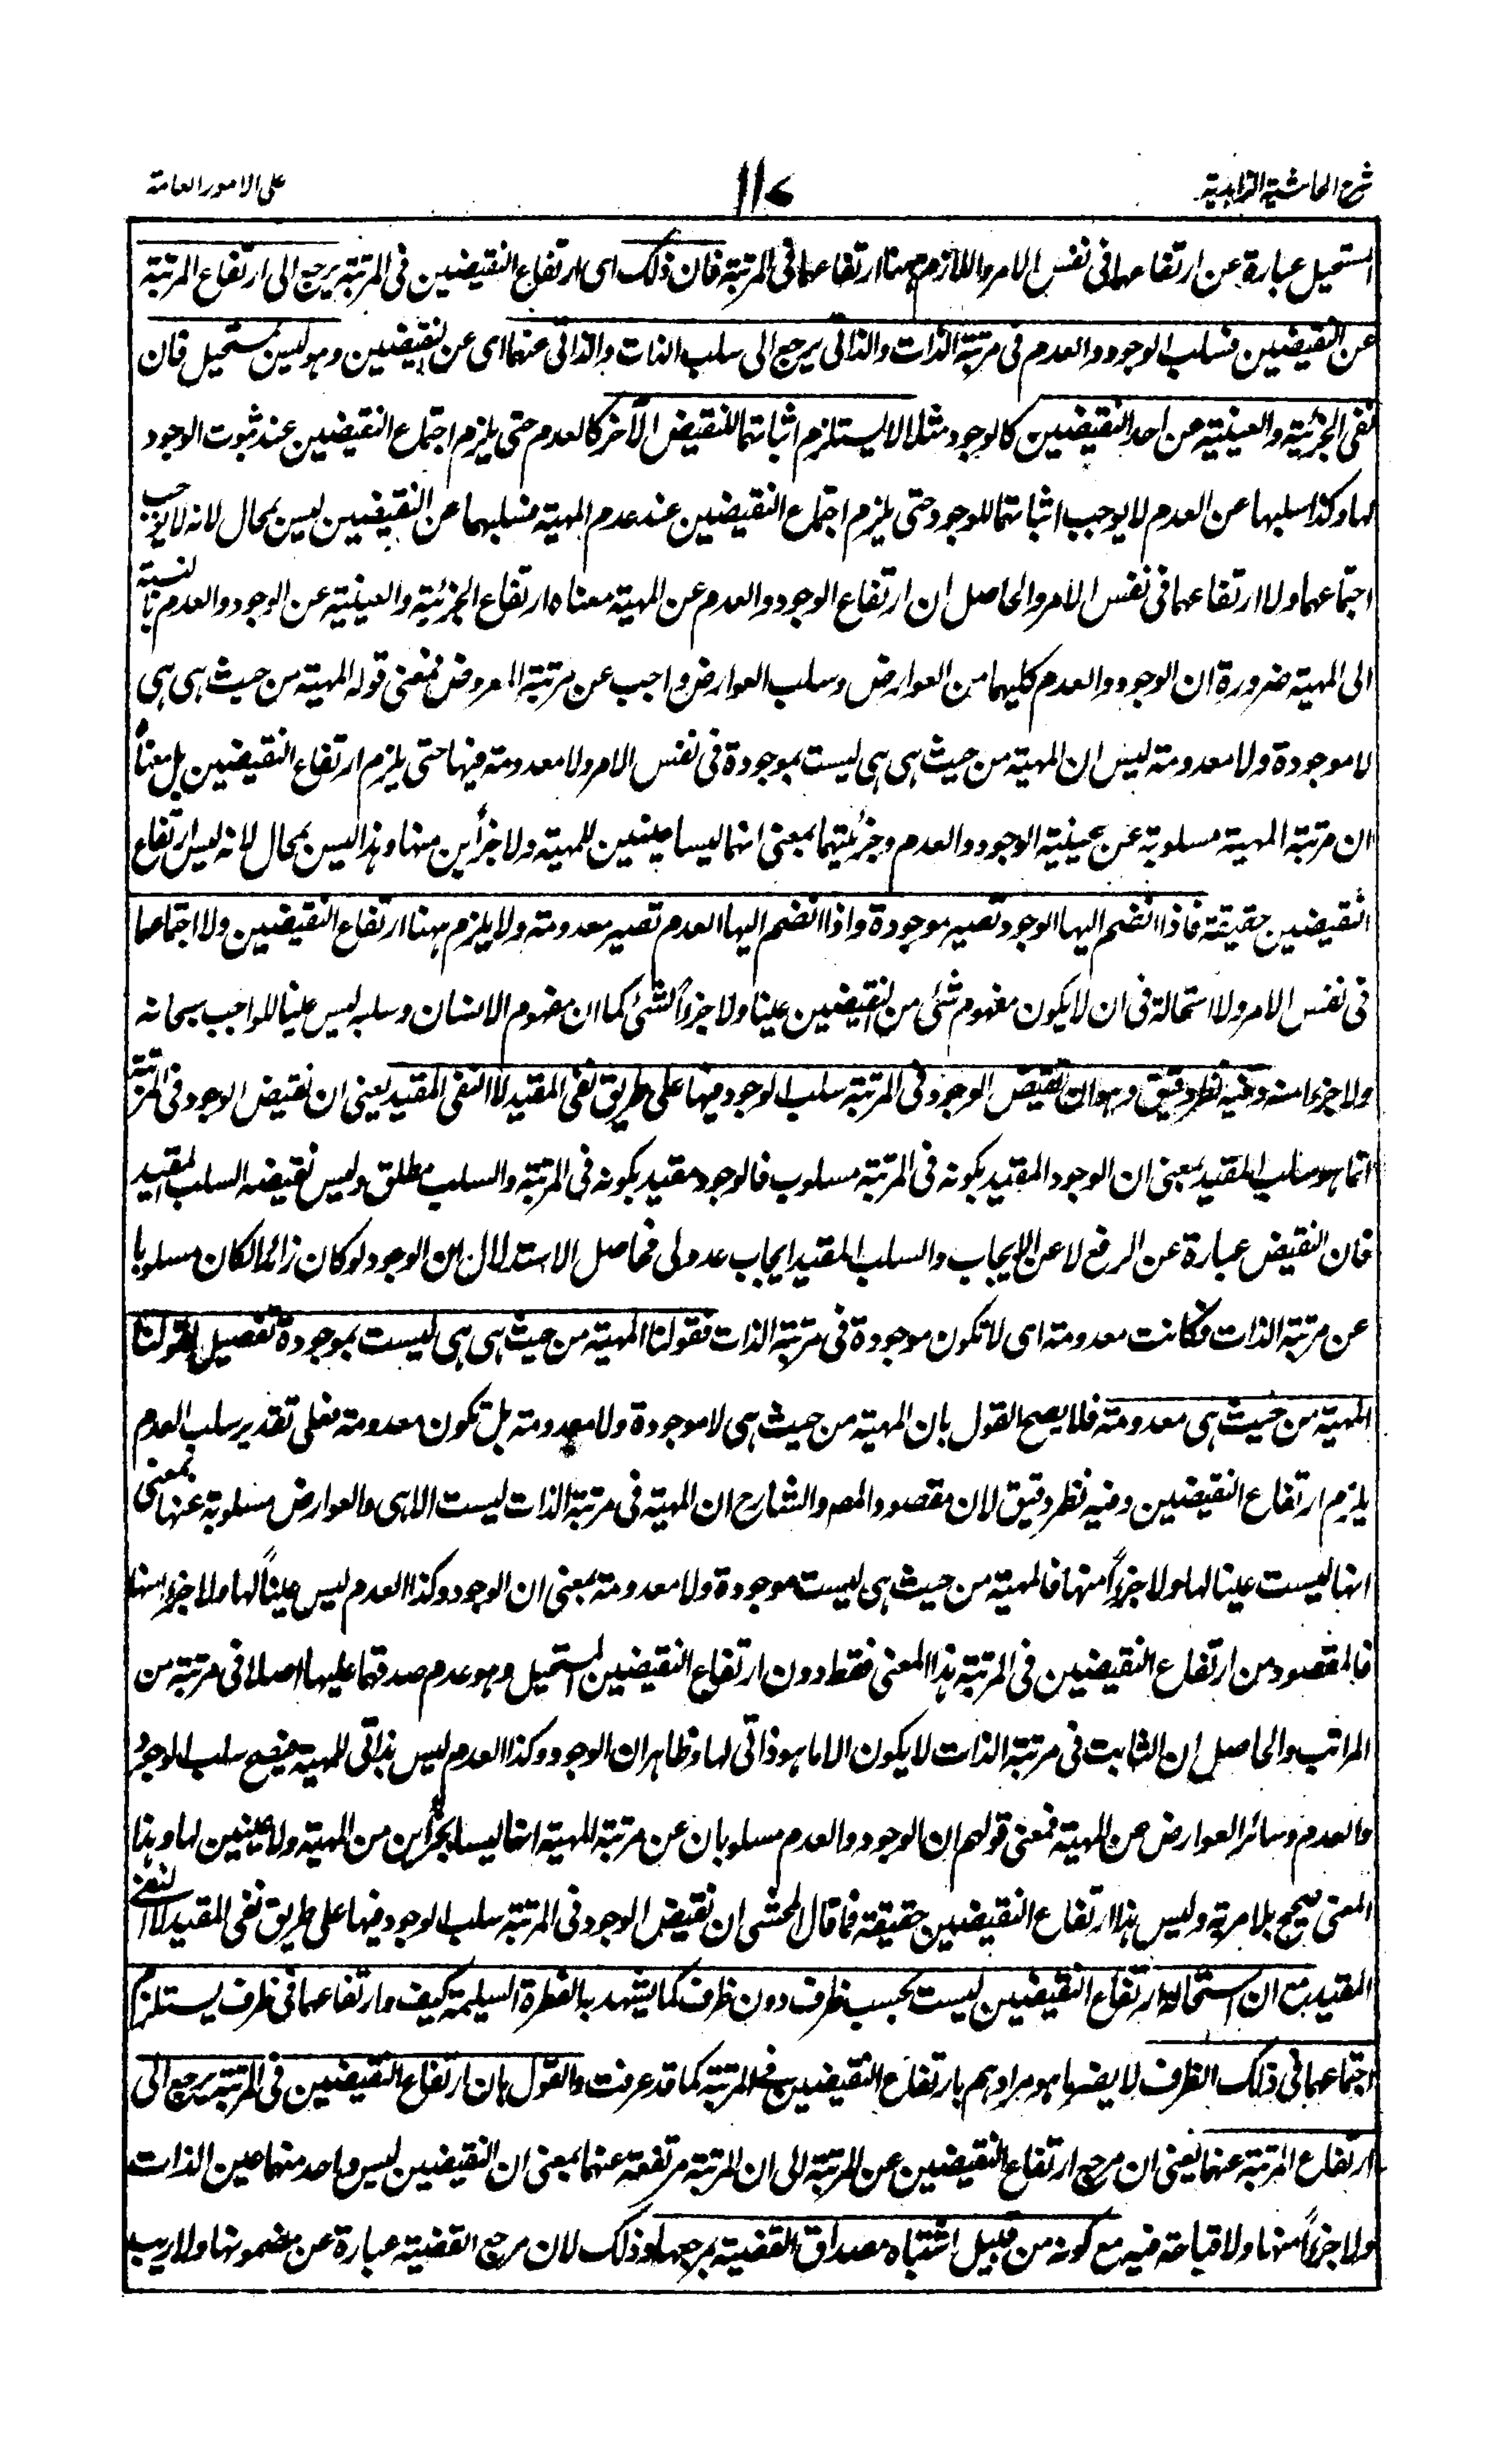 شرح الحاشية الزاهدية
١١٧
على الامور العامة
المستحيل عبارة عن ارتفاعهما فى نفس الامر واللازم ههنا ارتفاعهما فى المرتبة فان ذلك اى ارتفاع النقيضين فى المرتبة يرجع الى ارتفاع المرتبة
عن النقيضين فسلب الوجود والعدم فى مرتبة الذات والذاتى يرجع الى سلب الذات والذاتى عنهما اى عن النقيضين وهو ليس بمستحيل فان
نفى الجزئية والعينية عن احد النقيضين كالوجود مثلا لا يستلزم اثباتهما للنقيض الآخر كالعدم حتى يلزم اجتماع النقيضين عند ثبوت الوجود
لها وكذا سلبها عن العدم لا يوجب اثباتهما للوجود حتى يلزم اجتماع النقيضين عند عدم المهية فسلبهما عن النقيضين ليس بمحال لانه لا يوجب
اجتماعهما ولا ارتفاعهما فى نفس الامر والحاصل ان ارتفاع الوجود والعدم عن المهية معناه ارتفاع الجزئية والعينية عن الوجود والعدم بالنسبة
الى المهية ضرورة ان الوجود والعدم كليهما من العوارض وسلب العوارض واجب عن مرتبة المعروض فمعنى قوله المهية من حيث هى هى
لا موجودة ولا معدومة ليس ان المهية من حيث هى هى ليست بموجودة فى نفس الامر ولا معدومة فيها حتى يلزم ارتفاع النقيضين بل معناه
ان مرتبة المهية مسلوبة عن عينية الوجود والعدم وجزئيتهما بمعنى انهما ليسا عينين للمهية ولا جزأين منها وهذا ليس بمحال لانه ليس ارتفاع
النقيضين حقيقة فاذا انضم اليها الوجود تصير موجودة واذا انضم اليها العدم تصير معدومة ولا يلزم ههنا ارتفاع النقيضين ولا اجتماعهما
فى نفس الامر ولا استحالة فى ان لا يكون مفهوم شئ من النقيضين عينا ولا جزأ لشئ كما ان مفهوم الانسان وسلبه ليس عينا للواجب سبحانه
ولا جزءا منه وفيه نظر دقيق وهو ان نقيض الوجود فى المرتبة سلب الوجود فيها على طريق نفى المقيد لا النفى المقيد يعنى ان نقيض الوجود فى المرتبة
انما هو سلب المقيد بمعنى ان الوجود المقيد بكونه فى المرتبة مسلوب فالوجود مقيد بكونه فى المرتبة والسلب مطلق وليس نقيضه السلب المقيد
فان النقيض عبارة عن الرفع لا عن الايجاب والسلب المقيد ايجاب عدولى فحاصل الاستدلال ان الوجود لو كان زائدا لكان مسلوبا
عن مرتبة الذات فكانت معدومة اى لا تكون موجودة فى مرتبة الذات فقولنا المهية من حيث هى هى ليست بموجودة تفصيل لقولنا
المهية من حيث هى معدومة فلا يصح القول بان المهية من حيث هى لا موجودة ولا معدومة بل تكون معدومة فعلى تقدير سلب العدم
يلزم ارتفاع النقيضين وفيه نظر دقيق لان مقصود المصـ والشارح ان المهية فى مرتبة الذات ليست الا هى والعوارض مسلوبة عنها بمعنى
انها ليست عينا لها ولا جزءاً منها فالمهية من حيث هى ليست موجودة ولا معدومة بمعنى ان الوجود وكذا العدم ليس عيناً لها ولا جزءا منها
فالمقصود من ارتفاع النقيضين فى المرتبة هذا المعنى فقط دون ارتفاع النقيضين المستحيل وهو عدم صدقهما عليها اصلا فى مرتبة من
المراتب والحاصل ان الثابت فى مرتبة الذات لا يكون الا ما هو ذاتى لها وظاهر ان الوجود وكذا العدم ليس بذاتى للمهية فيصح سلب الوجود
والعدم وسائر العوارض عن المهية فمعنى قولهم ان الوجود والعدم مسلوبان عن مرتبة المهية انهما ليسا بجزأين من المهية ولا عينين لها وهذا
المعنى صحيح بلا مرية وليس هذا ارتفاع النقيضين حقيقة فما قال المحشى ان نقيض الوجود فى المرتبة سلب الوجود فيها على طريق نفى المقيد لا النفى
المقيد مع ان استحالة ارتفاع النقيضين ليست بحسب ظرف دون ظرف كما يشهد به الفطرة السليمة كيف وارتفاعهما فى ظرف يستلزم
اجتماعهما فى ذلك الظرف لا يضر ما هو مرادهم بارتفاع النقيضين فى المرتبة كما قد عرفت والقول بان ارتفاع النقيضين فى المرتبة يرجع الى
ارتفاع المرتبة عنهما يعنى ان مرجع ارتفاع النقيضين عن المرتبة الى ان المرتبة مرتفعة عنهما بمعنى ان النقيضين ليس واحد منهما عين الذات
ولا جزءاً منها ولا قباحة فيه مع كونه من قبيل اشتباه مصداق القضية بمرجعها وذلك لان مرجع القضية عبارة عن مضمونها ولا ريب